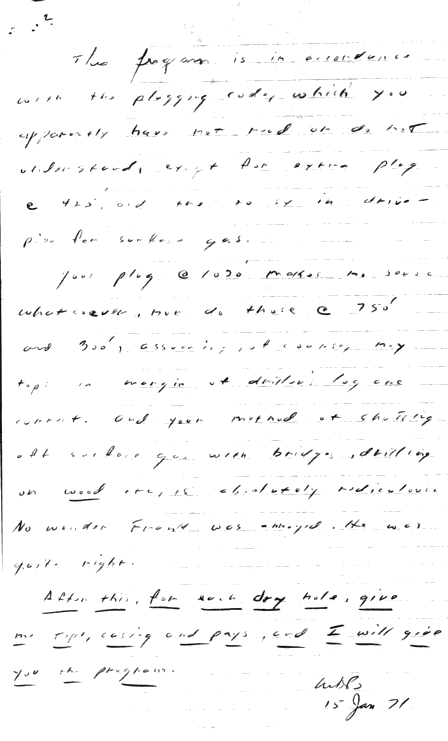 2
This program is in accordance
with the plugging code, which you
apparently have not read or do not
understand, except for extra plug
@ 425', and the 10 sx in drive-
pipe for surface gas.
Your plug @ 1030' makes no sense
whatsoever, nor do those @ 750'
and 300', assuming, of course, my
tops in margin of driller's log are
correct. And your method of shutting
off surface gas with bridges, drilling
on wood etc, is absolutely ridiculous.
No wonder Frank was annoyed. He was
quite right.
After this, for each dry hole, give
me tops, casing and pays, and I will give
you the program.
15 Jan 71